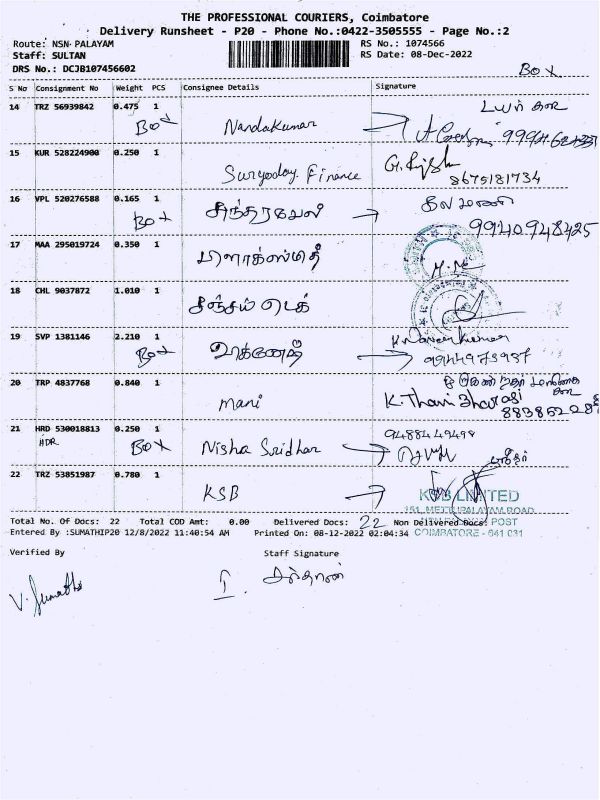 THE PROFESSIONAL COURIERS, Coimbatore
Delivery Runsheet - P20 - Phone No.:0422-3505555 - Page No.:2
Route: NSN PALAYAM RS No.: 1074566
Staff: SULTAN RS Date: 08-Dec-2022
DRS No.: DCJB107456602
BOX
S No Consignment No Weight PCS Consignee Details Signature
14 TRZ 56939842 0.475 1
Box Nandakumar
15 KUR 528224900 0.250 1
Suryoday Finance
8675181734
16 VPL 520276588 0.165 1
Box சுந்தரவேல்
9940948425
17 MAA 295019724 0.350 1
18 CHL 9037872 1.010 1
19 SVP 1381146 2.210 1
Box K. Naveenkumar
9944973937
20 TRP 4837768 0.840 1
Mani
21 HRD 530018813 0.250 1 9488449498
HDR BOX Nisha Sridhar
22 TRZ 53851987 0.780 1
KSB
KSB LIMITED
151, METTUPALAYAM ROAD
POST
COIMBATORE - 641 031
Total No. Of Docs: 22 Total COD Amt: 0.00 Delivered Docs: 22 Non Delivered Docs:
Entered By :SUMATHIP20 12/8/2022 11:40:54 AM Printed On: 08-12-2022 02:04:34
Verified By Staff Signature
V. Sumathi I. சுல்தான்